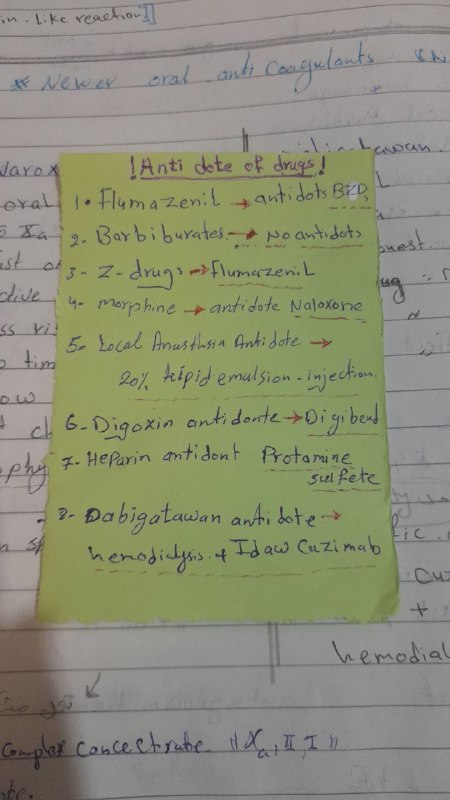 in - like reaction]]
* Newer oral anti Coagulants
! Anti dote of drugs !
1. Flumazenil → antidots BZD,
2. Barbiburates → No antidots
3 - Z - drugs → Flumazenil
4 - morphine → antidote Naloxone
5 - Local Anasthsia Antidote →
20% lipid emulsion - injection.
6 - Digoxin antidonte → Digibend
7 - Heparin antidont Protamine
sulfete
8 - Dabigatawan antidote →
hemodialysis + Idaw Cuzimab
hemodial
Complex concestrate. "Xa, II, I"